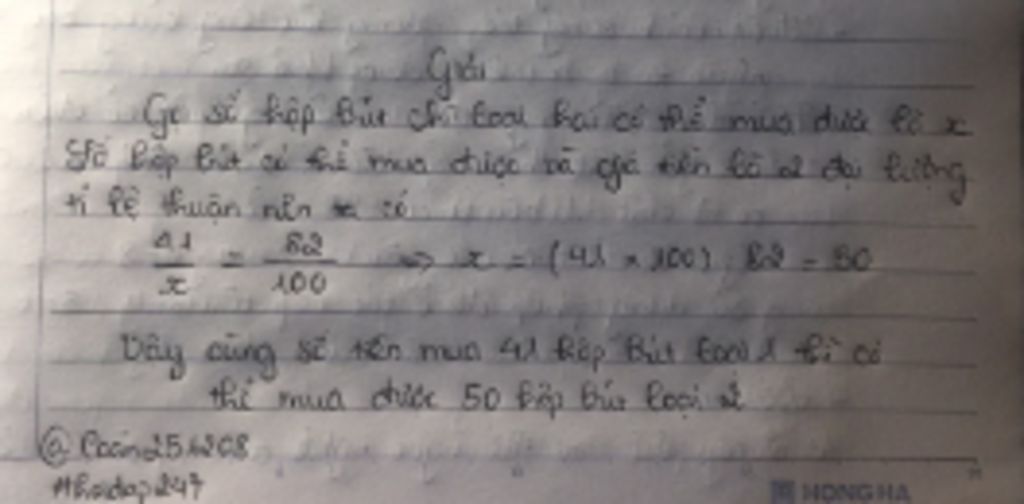 Giải
Gọi số hộp bút chì loại hai có thể mua được là x
Số hộp bút có thể mua được và giá tiền là 2 đại lượng
tỉ lệ thuận nên ta có
41/x = 82/100 => x = (41 x 100) : 82 = 50
Vậy cùng số tiền mua 41 hộp bút loại 1 thì có
thể mua được 50 hộp bút loại 2
#hoidap247
HONG HA